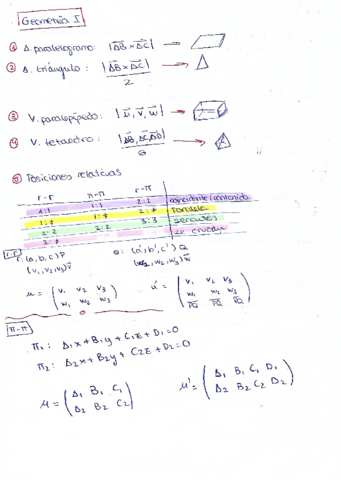 Geometría I
① A. paralelogramo |AB x AC| →
② A. triángulo : |AB x AC| / 2 →
③ V. paralepípedo | u, v, w | →
④ V. tetaedro : |AB, AC, AD| / 6 →
⑤ Posiciones relativas
r-r π-π r-π
1:1 1:1 2:2 coincidente/contenido
1:2 1:2 2:3 Paralela
2:2 2:2 3:3 secantes
2:3 se cruzan
r-r r: (a, b, c) P Q: (a', b', c') Q
(v1, v2, v3) v (w1, w2, w3) w
M = ( v1 v2 v3
w1 w2 w3 )
M' = ( v1 v2 v3
w1 w2 w3
PQ PQ PQ )
π-π
π1: A1x + B1y + C1z + D1 = 0
π2: A2x + B2y + C2z + D2 = 0
M = ( A1 B1 C1
A2 B2 C2 )
M' = ( A1 B1 C1 D1
A2 B2 C2 D2 )